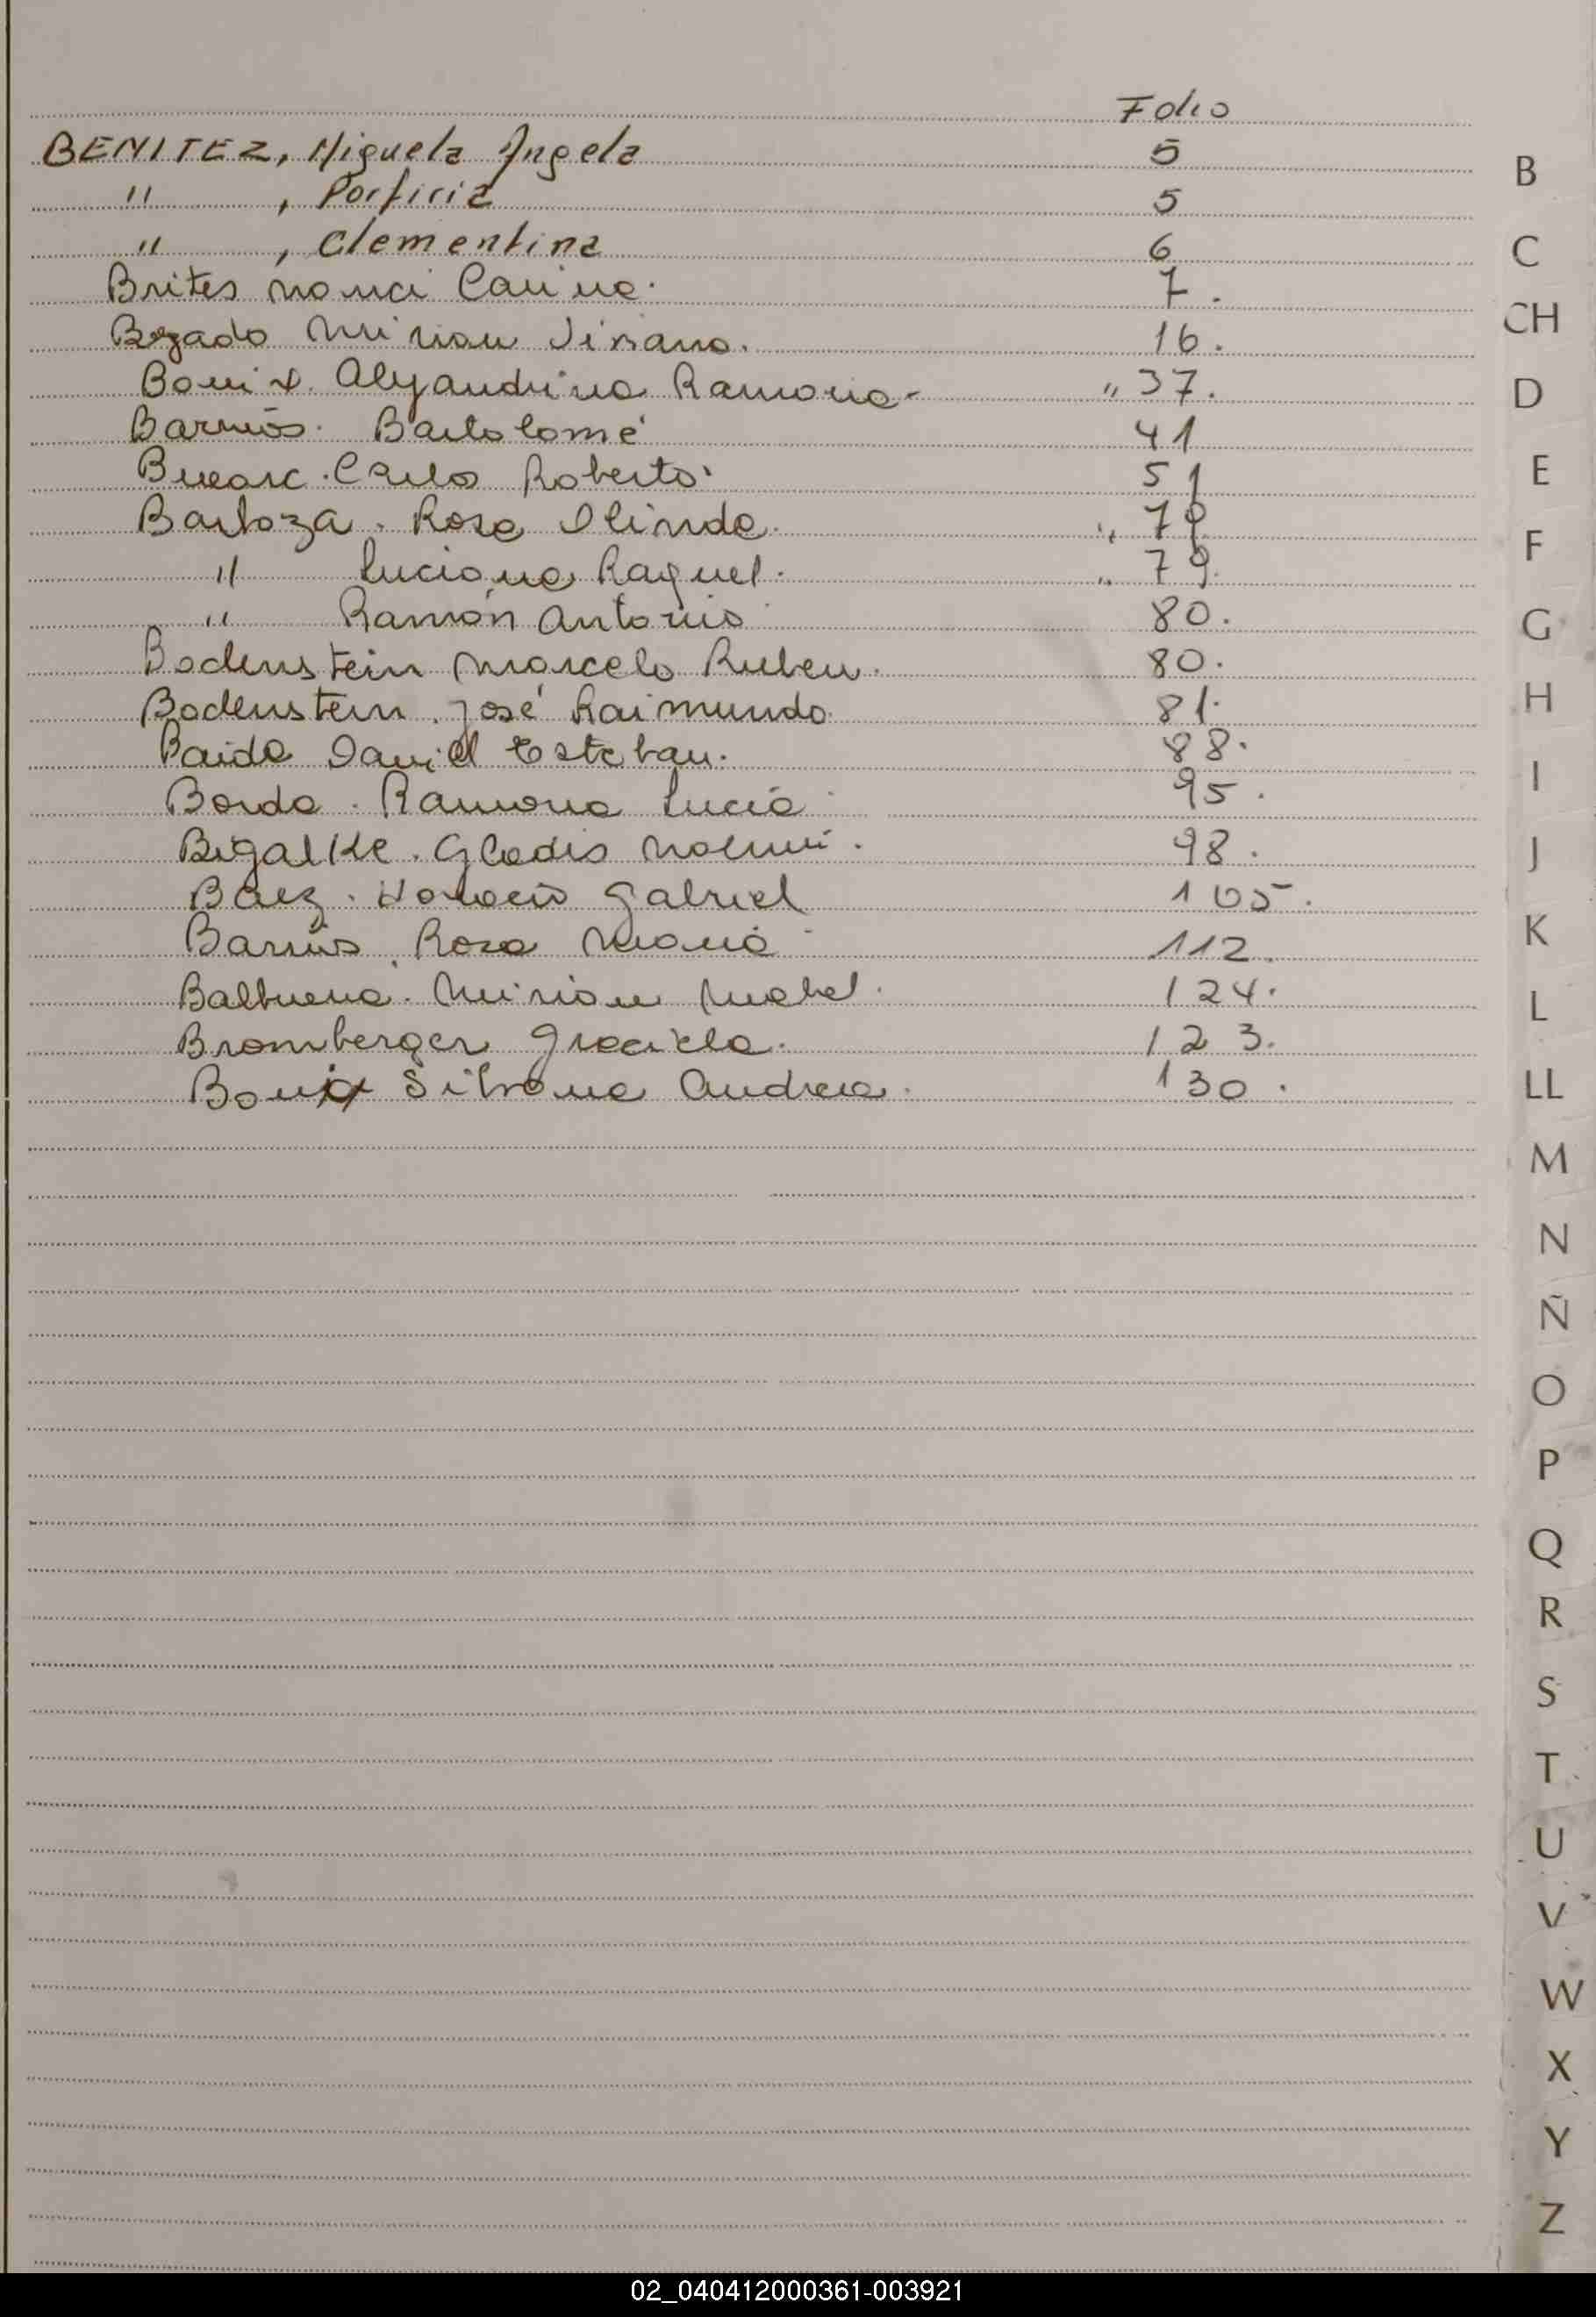 Folio
BENITEZ, Miguela Angela 5
" , Porfiria 5
" , Clementina 6
Brites Nanci Carina. 7.
Miriam Viviana. 16.
Alejandrina Ramona- " 37.
Barrios. Bartolomé 41
Carlos Roberto. 51
Barboza. Rosa Olinda. " 79.
" Luciana Raquel. " 79.
" Ramón Antonio 80.
Bodenstein Marcelo Ruben. 80.
Bodenstein. José Raimundo. 81.
Daniel Esteban. 88.
Borda. Ramona Lucia 95.
Bigalke. Gladis Noemi. 98.
Baez. Horacio Gabriel 105.
Barrios. Rosa Maria 112.
Balbuena. Miriam Mabel. 124.
Bromberger Graciela. 123.
Silvana Andrea. 130.
B
C
CH
D
E
F
G
H
I
J
K
L
LL
M
N
Ñ
O
P
Q
R
S
T
U
V
W
X
Y
Z
02_040412000361-003921